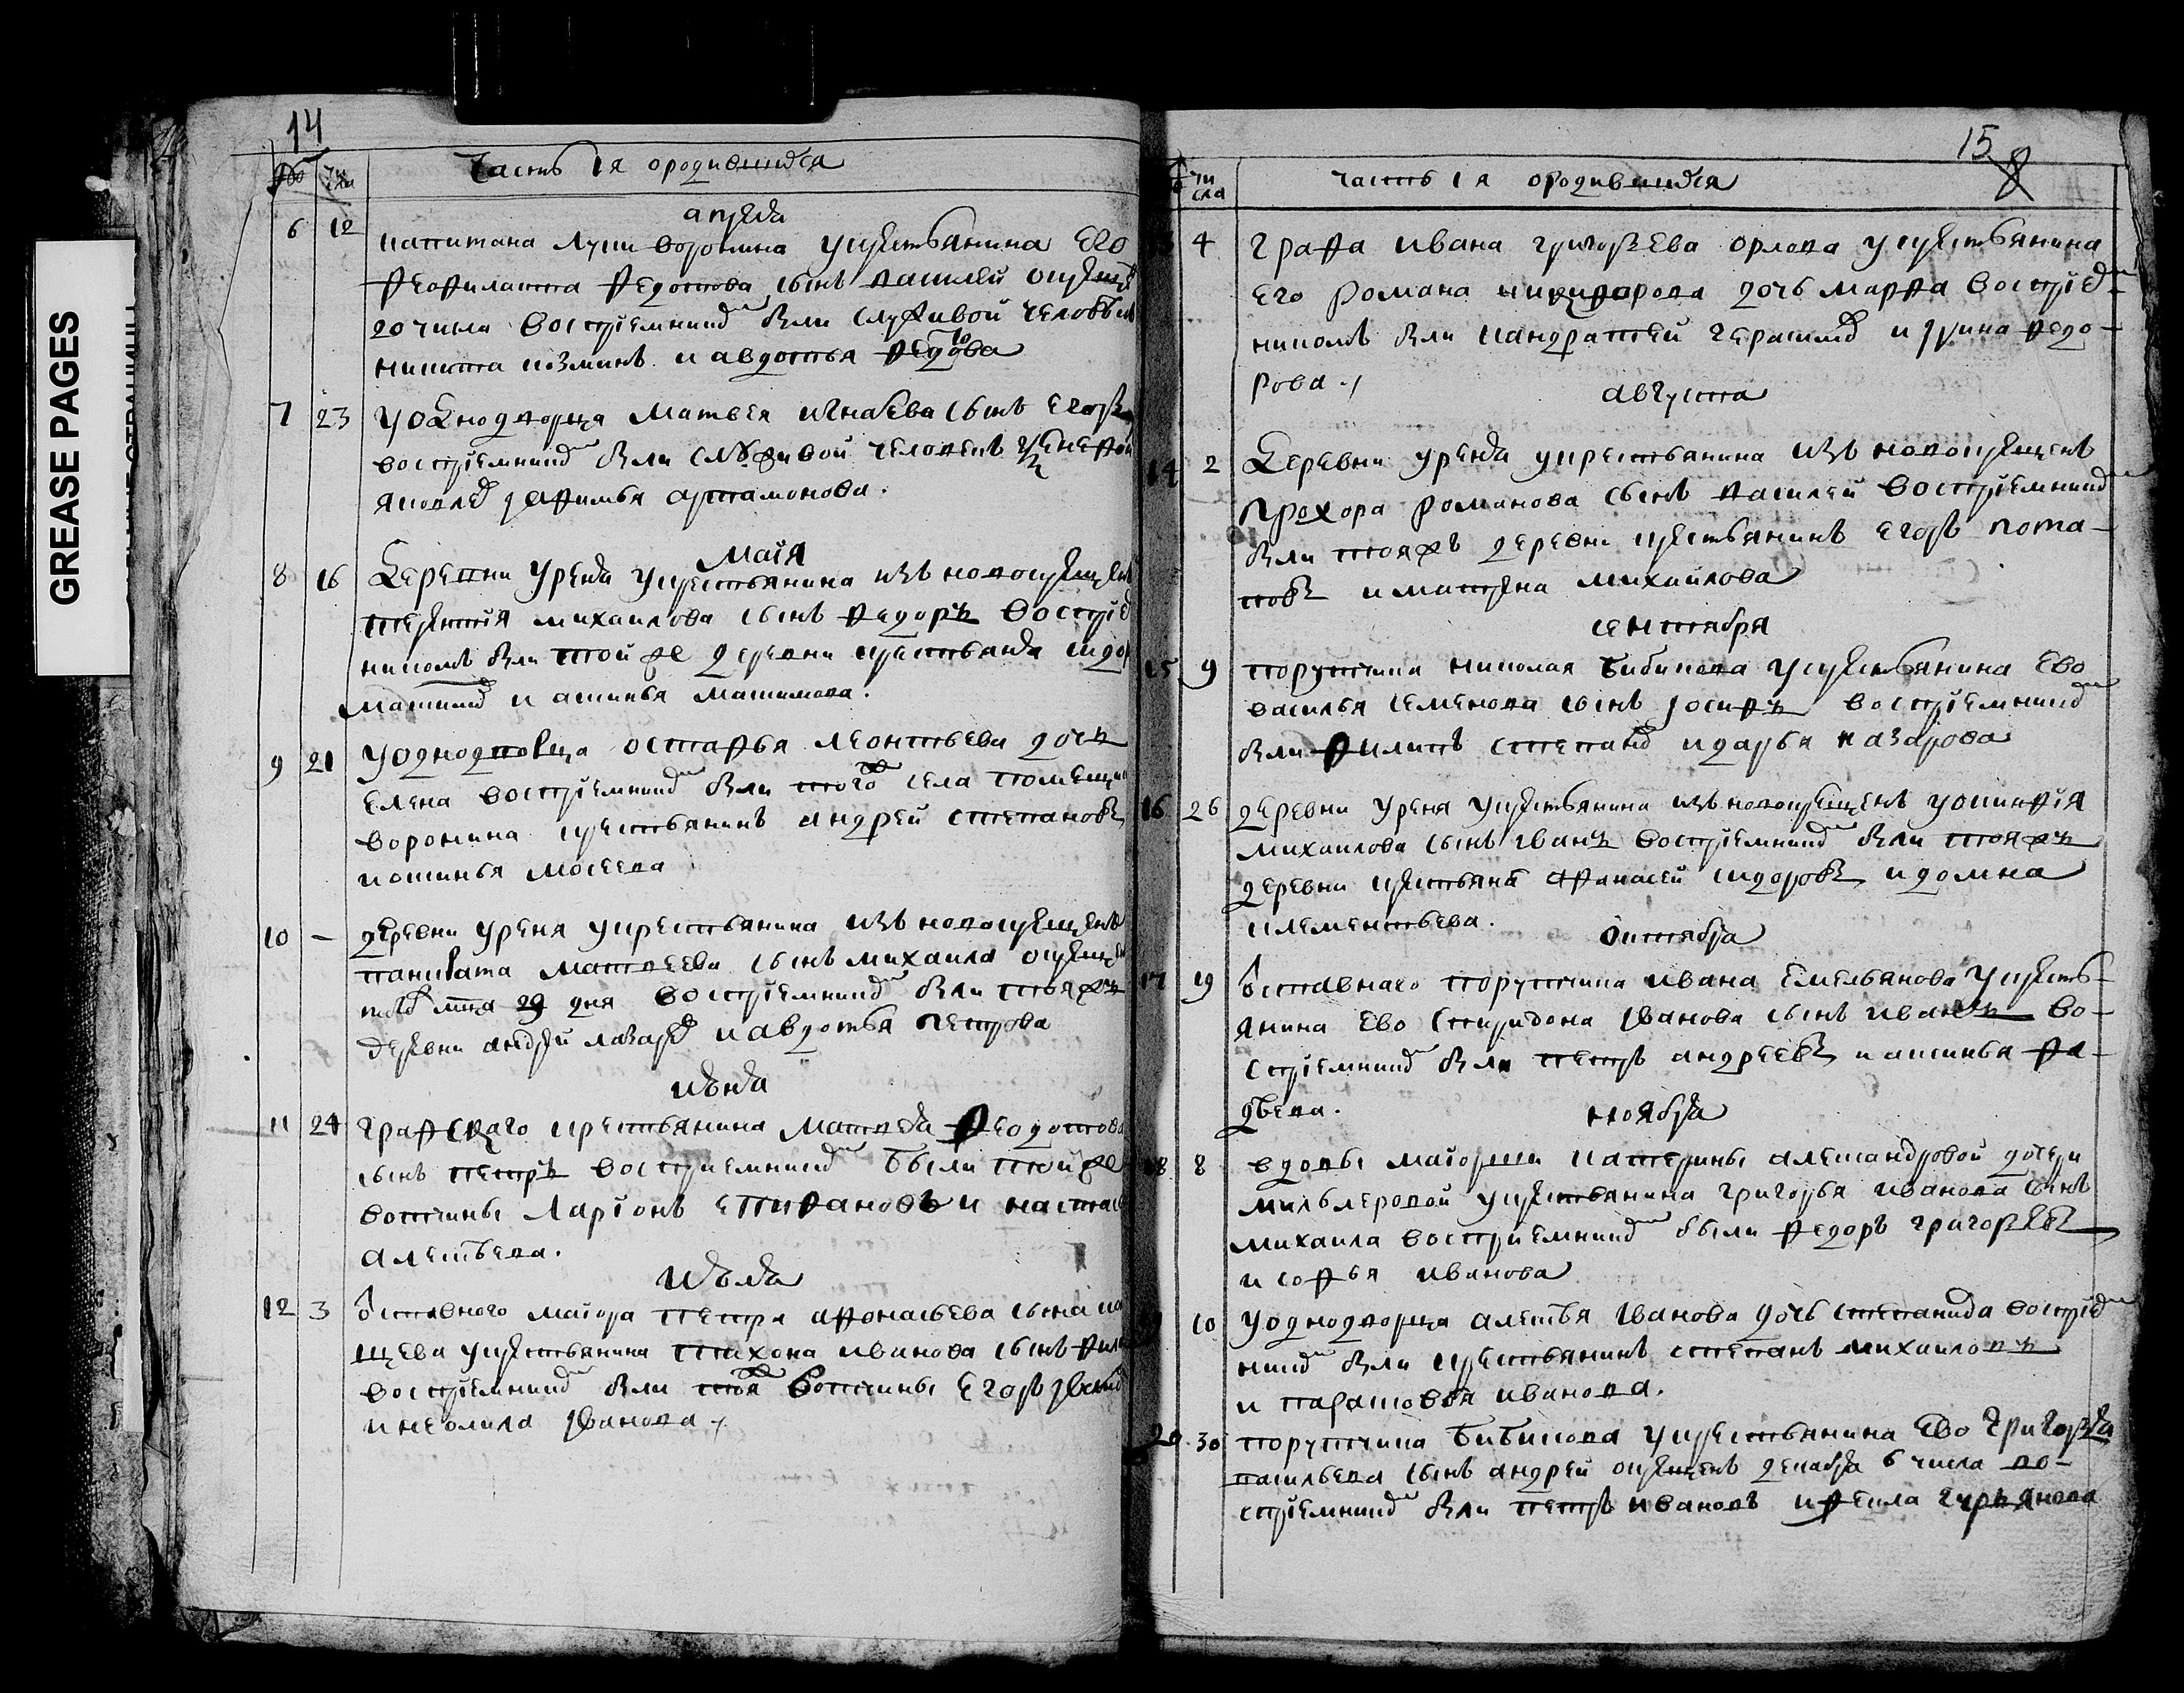 GREASE PAGES
14
Число
Часть 1я ородившихся
апреля
6 12 капитана луки воронина укрестьянина его
феофилакта федотова сынъ василей окреще
20 числа восприемники были служивой человекъ
никита козминъ и авдотья федорова
7 23 Уоднодворца матвея игнатьева сынъ егоръ
восприемники были служивой человекъ
яковлев ефимья артамонова.
маия
8 16 Деревни Уреня укрестьянина изъ новокрещенъ
терентiя михаилова сынъ федоръ воспрiе
никомъ были той же деревни крестьяня сидор
и аксинья максимова.
9 21 Уоднодворца остафья леонтьева дочь
елена восприемники были того села помещика
воронина крестьянинъ андрей степановъ
иксинья мосеева
10 - деревни уреня укрестьянина изъ новокрещенъ
панкрата матвеева сынъ михаила окрещен
мца 29 дня восприемники были тояжъ
деревни андрей лазарев и авдотья петрова
июня
11 24 графскаго крестьянина матвея феодотова
сынъ петръ восприемники были той же
вотчины ларiонъ епифановъ и настасья
алексеева.
июля
12 3 оставного маiора петра афонасьева сына
щева укрестьянина тихона иванова сынъ
восприемники были тоя вотчины егоръ
и неонила иванова.
15
8
числа
часть 1я ородившихся
4 графа ивана григорьева орлова укрестьянина
его романа никифорова дочь марфа воспрiе-
никомъ были кандратей герасимов и ирина федо-
рова.
августа
14 2 Деревни уреня укрестьянина изъ новокрещенъ
прохора романова сынъ василей восприемники
были тояжъ деревни крестьянинъ егоръ пота-
повъ и матрена михаилова
сентября
15 9 порутчика николая бибикова укрестьянина ево
василья семенова сынъ iосифъ восприемники
были филипъ степанов и дарья назарова
16 26 деревни уреня укрестьянина изъ новокрещенъ
михаилова сынъ iванъ восприемники были тояжъ
деревни крестьяня афанасей сидоровъ и домна
клементьева.
октября
17 19 оставнаго порутчика ивана емельянова укресть-
янина ево спиридона iванова сынъ иванъ во-
сприемники были петръ андреевъ и аксинья фа-
деева.
ноября
18 8 вдовы маiорши катерины александровой дочери
мильлеровой укрестьянина григорья иванова сынъ
михаила восприемники были федоръ григорьевъ
и софья иванова
10 Уоднодворца алексея iванова дочь степанида воспрiе
ники были крестьянинъ степанъ михаиловъ
и парасковья иванова.
20 30 порутчика бибикова укрестьянина ево григорья
васильева сынъ андрей окрещенъ декабря 6 числа во-
сприемники были петръ ивановъ и фекла